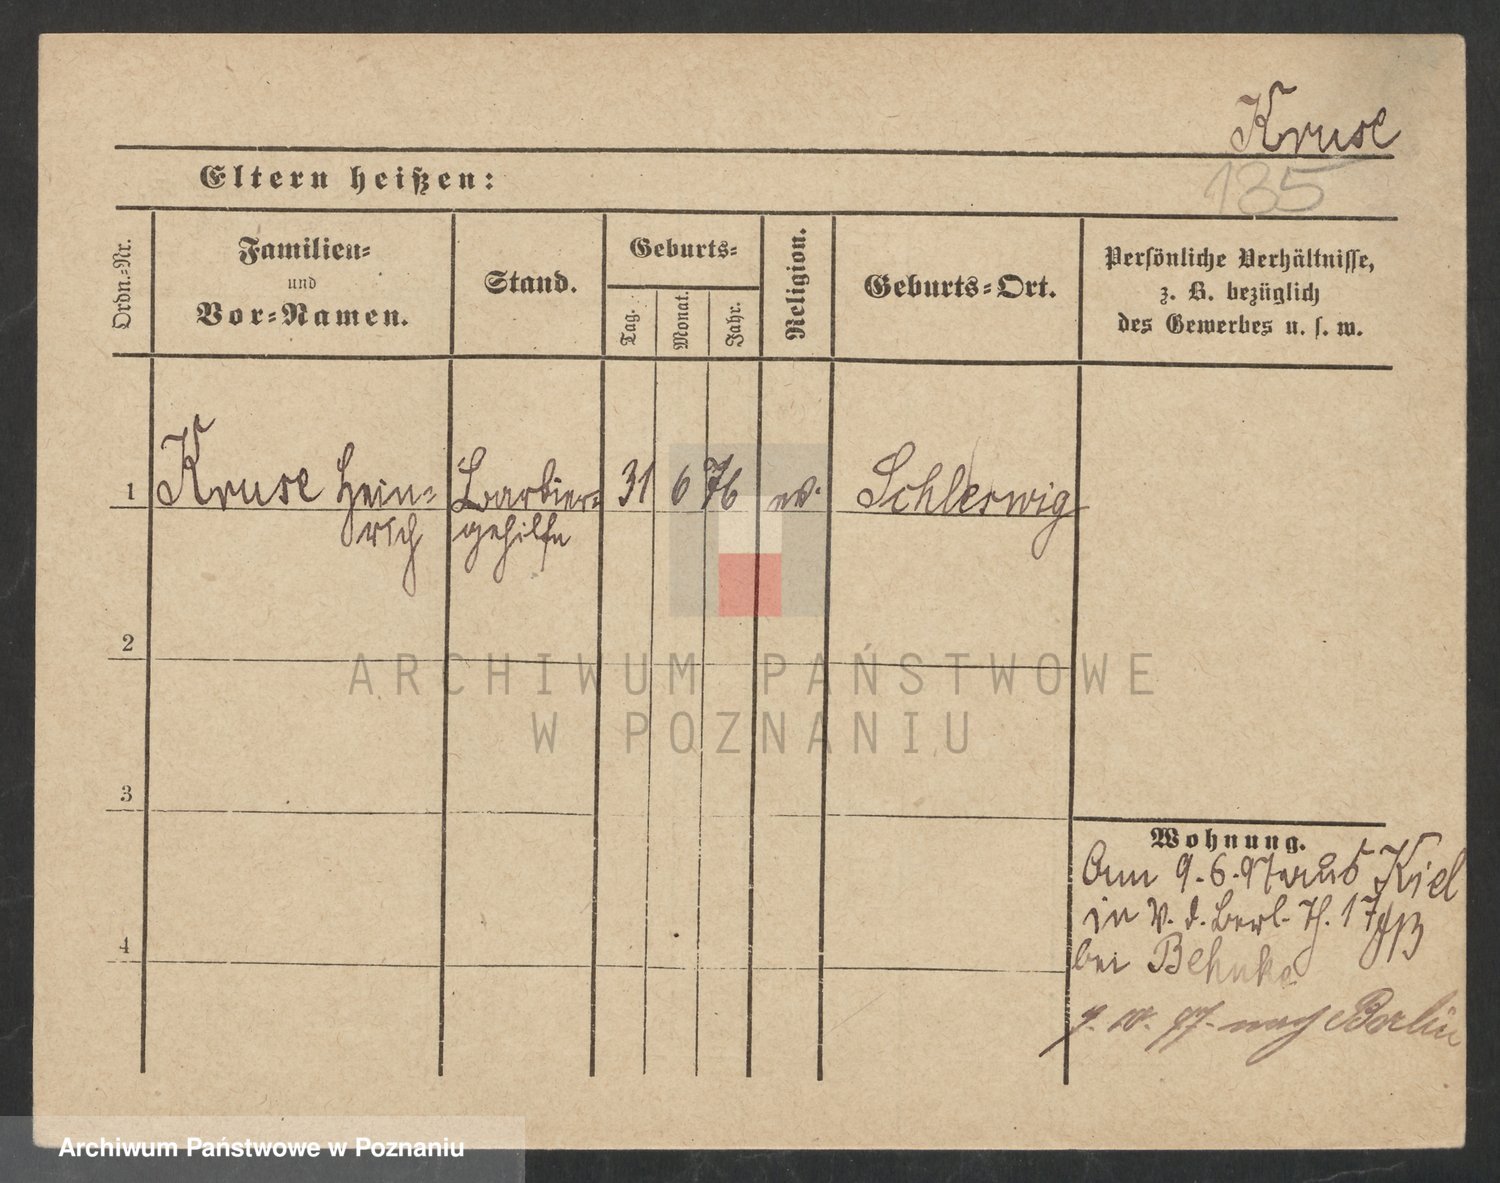 Kruse
135
Eltern heißen:
Ordn.-Nr.
Familien-
und
Vor-Namen.
Stand.
Geburts-
Tag.
Monat.
Jahr.
Religion.
Geburts-Ort.
Persönliche Verhältnisse,
z. B. bezüglich
des Gewerbes u. s. w.
1 Kruse Hein- Barbier- 31 6 76 ev. Schleswig
rich gehilfe
2
3
4
ARCHIWUM PAŃSTWOWE
W POZNANIU
Wohnung.
Am 9.6.97 aus Kiel
in V. d. Berl. Th. 17
bei Behnke
9. 10. 97. nach Berlin
Archiwum Państwowe w Poznaniu